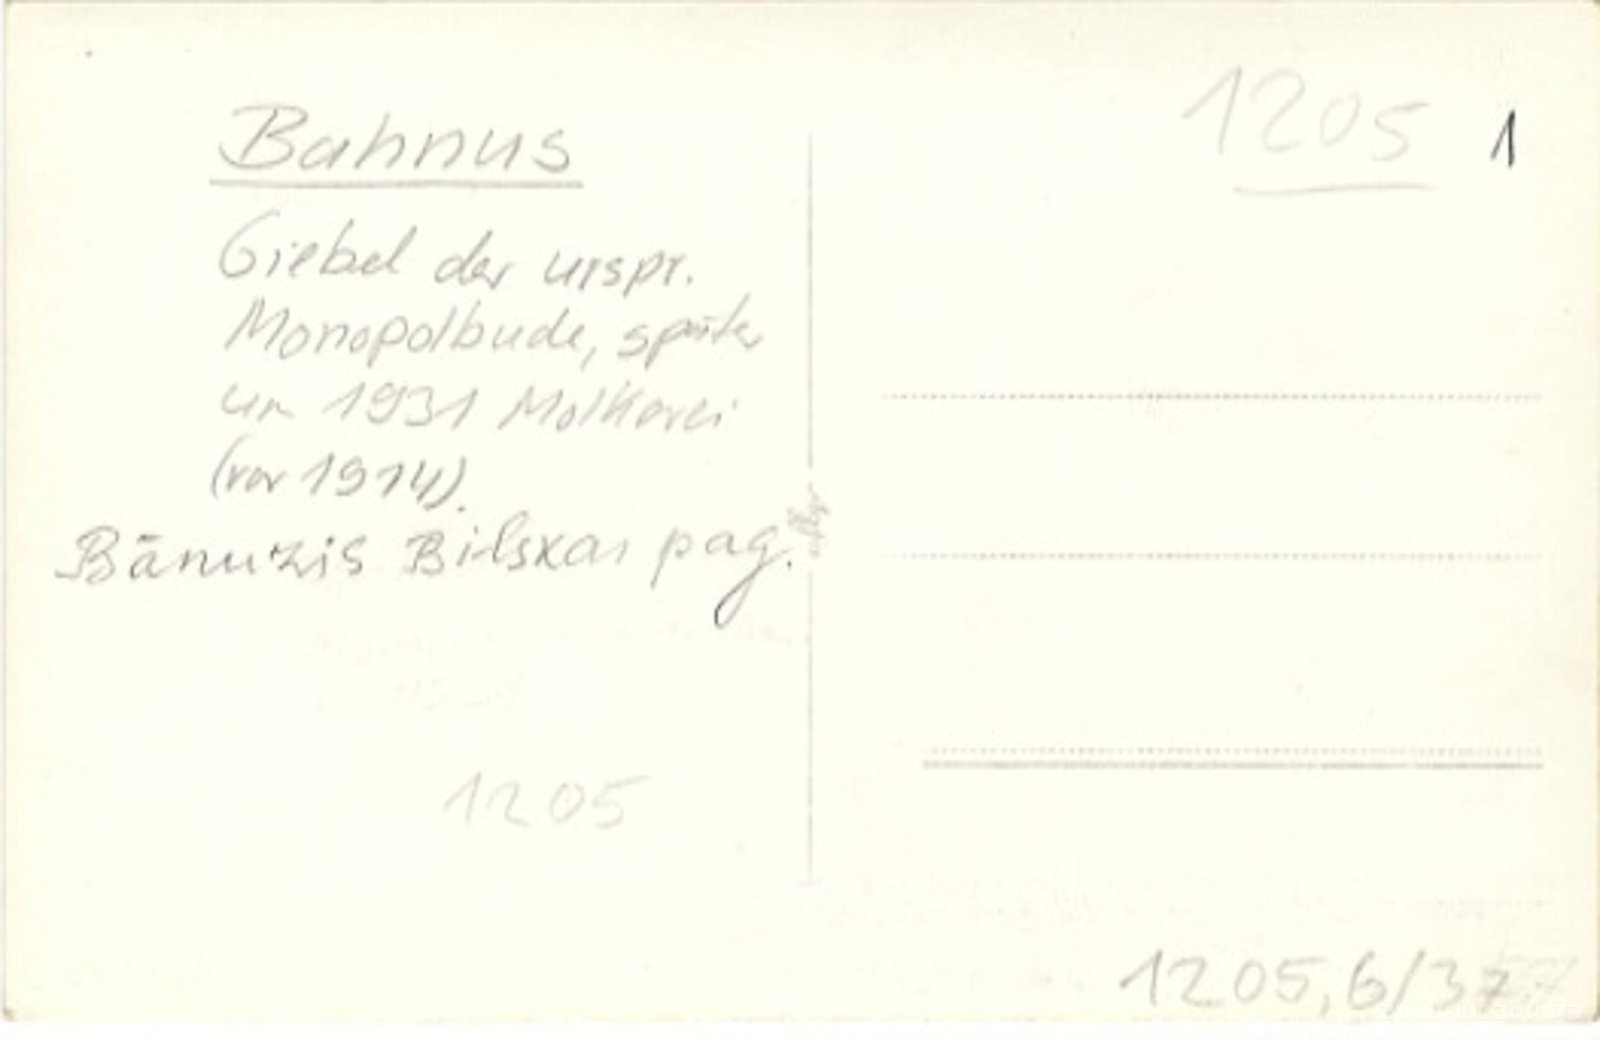 Bahnus
Giebel der urspr.
Monopolbude, später
um 1931 Molkerei
(vor 1914).
Bānužis Bilskas pag.
1205
1205
1
1205,6/37